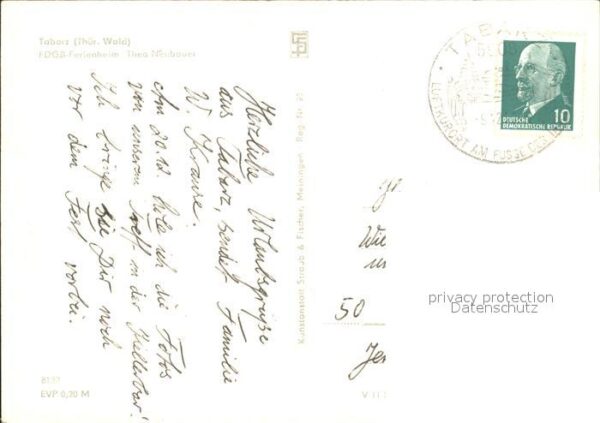 Tabarz (Thür. Wald)
FDGB-Ferienheim Theo Neubauer
Herzliche Urlaubsgrüße
aus Tabarz, sendet Familie
W. Krause.
Am 20.12. hole ich die Fotos
von unserem Treff in der Kellerbar!
Ich bringe sie Dir noch
vor dem Fest vorbei.
8137
EVP 0,20 M
Kunstanstalt Straub & Fischer, Meiningen Reg Nr.
V 11
TABARZ
LUFTKURORT AM FUSSE DES
10
DEUTSCHE
DEMOKRATISCHE REPUBLIK
50
privacy protection
Datenschutz